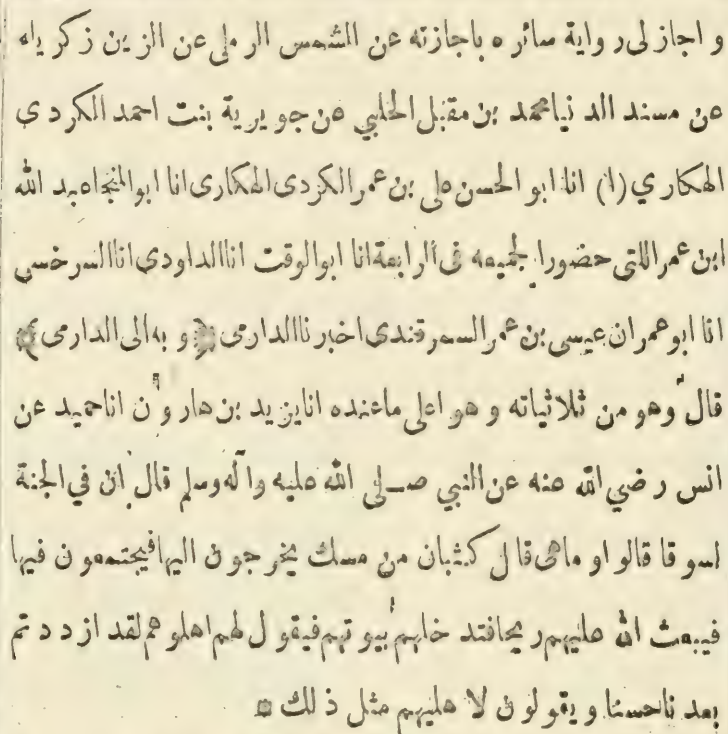 و اجاز لى رواية سائره باجازته عن الشمس الرملى عن الزين زكرياء
عن مسند الدنيا محمد بن مقبل الحلبي عن جويرية بنت احمد الكردى
الهكاري (١) انا ابو الحسن على بن عمر الكردى الهكارى انا ابو المنجا عبد الله
ابن عمر اللتى حضورا لجميعه فى الرابعة انا ابوالوقت انا الداودى انا السرخسى
انا ابو عمران عيسى بن عمر السمرقندى اخبرنا الدارمى ﴿و به الى الدارمى﴾
قال وهو من ثلاثياته و هو اعلى ما عنده انا يزيد بن هارون انا حميد عن
انس رضي الله عنه عن النبي صلى الله عليه وآله وسلم قال ان في الجنة
لسوقا قالوا و ماهى قال كثبان من مسك يخرجون اليها فيجتمعون فيها
فيبعث الله عليهم ريحا فتدخلهم بيوتهم فيقول لهم اهلوهم لقد ازددتم
بعدنا حسنا و يقولون لاهليهم مثل ذلك